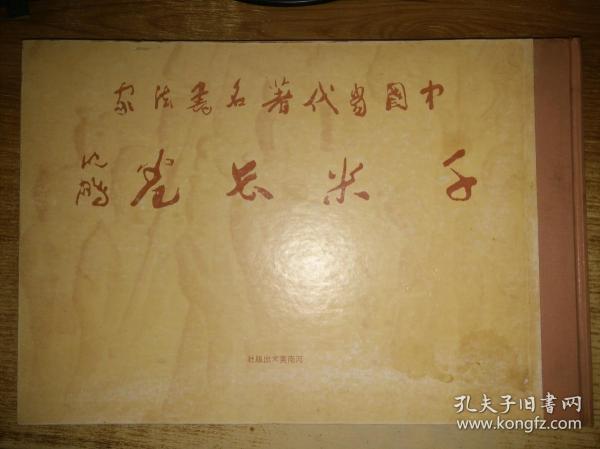 中國當代著名書法家
千米长卷
河南美术出版社
孔夫子旧書网
www.kongfz.com